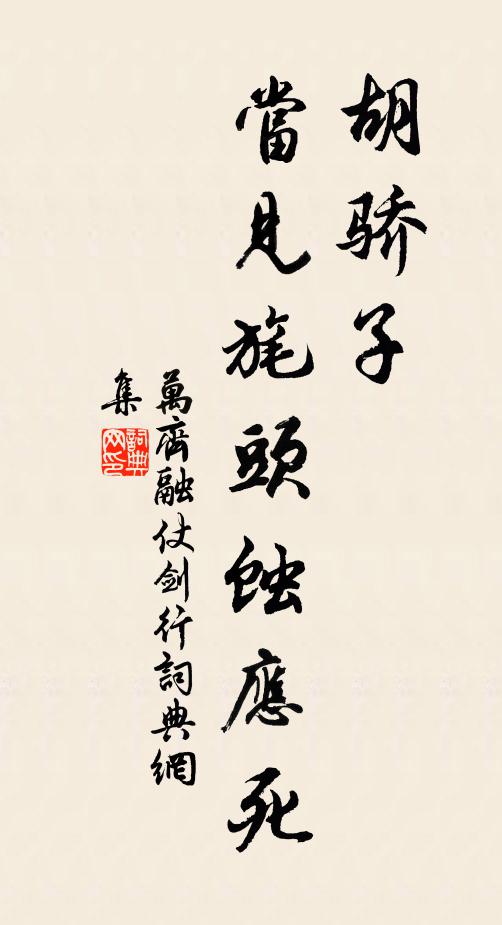 胡骄子
當見旄頭蝕應死
萬齊融仗剑行詞典網
集
詞典网印